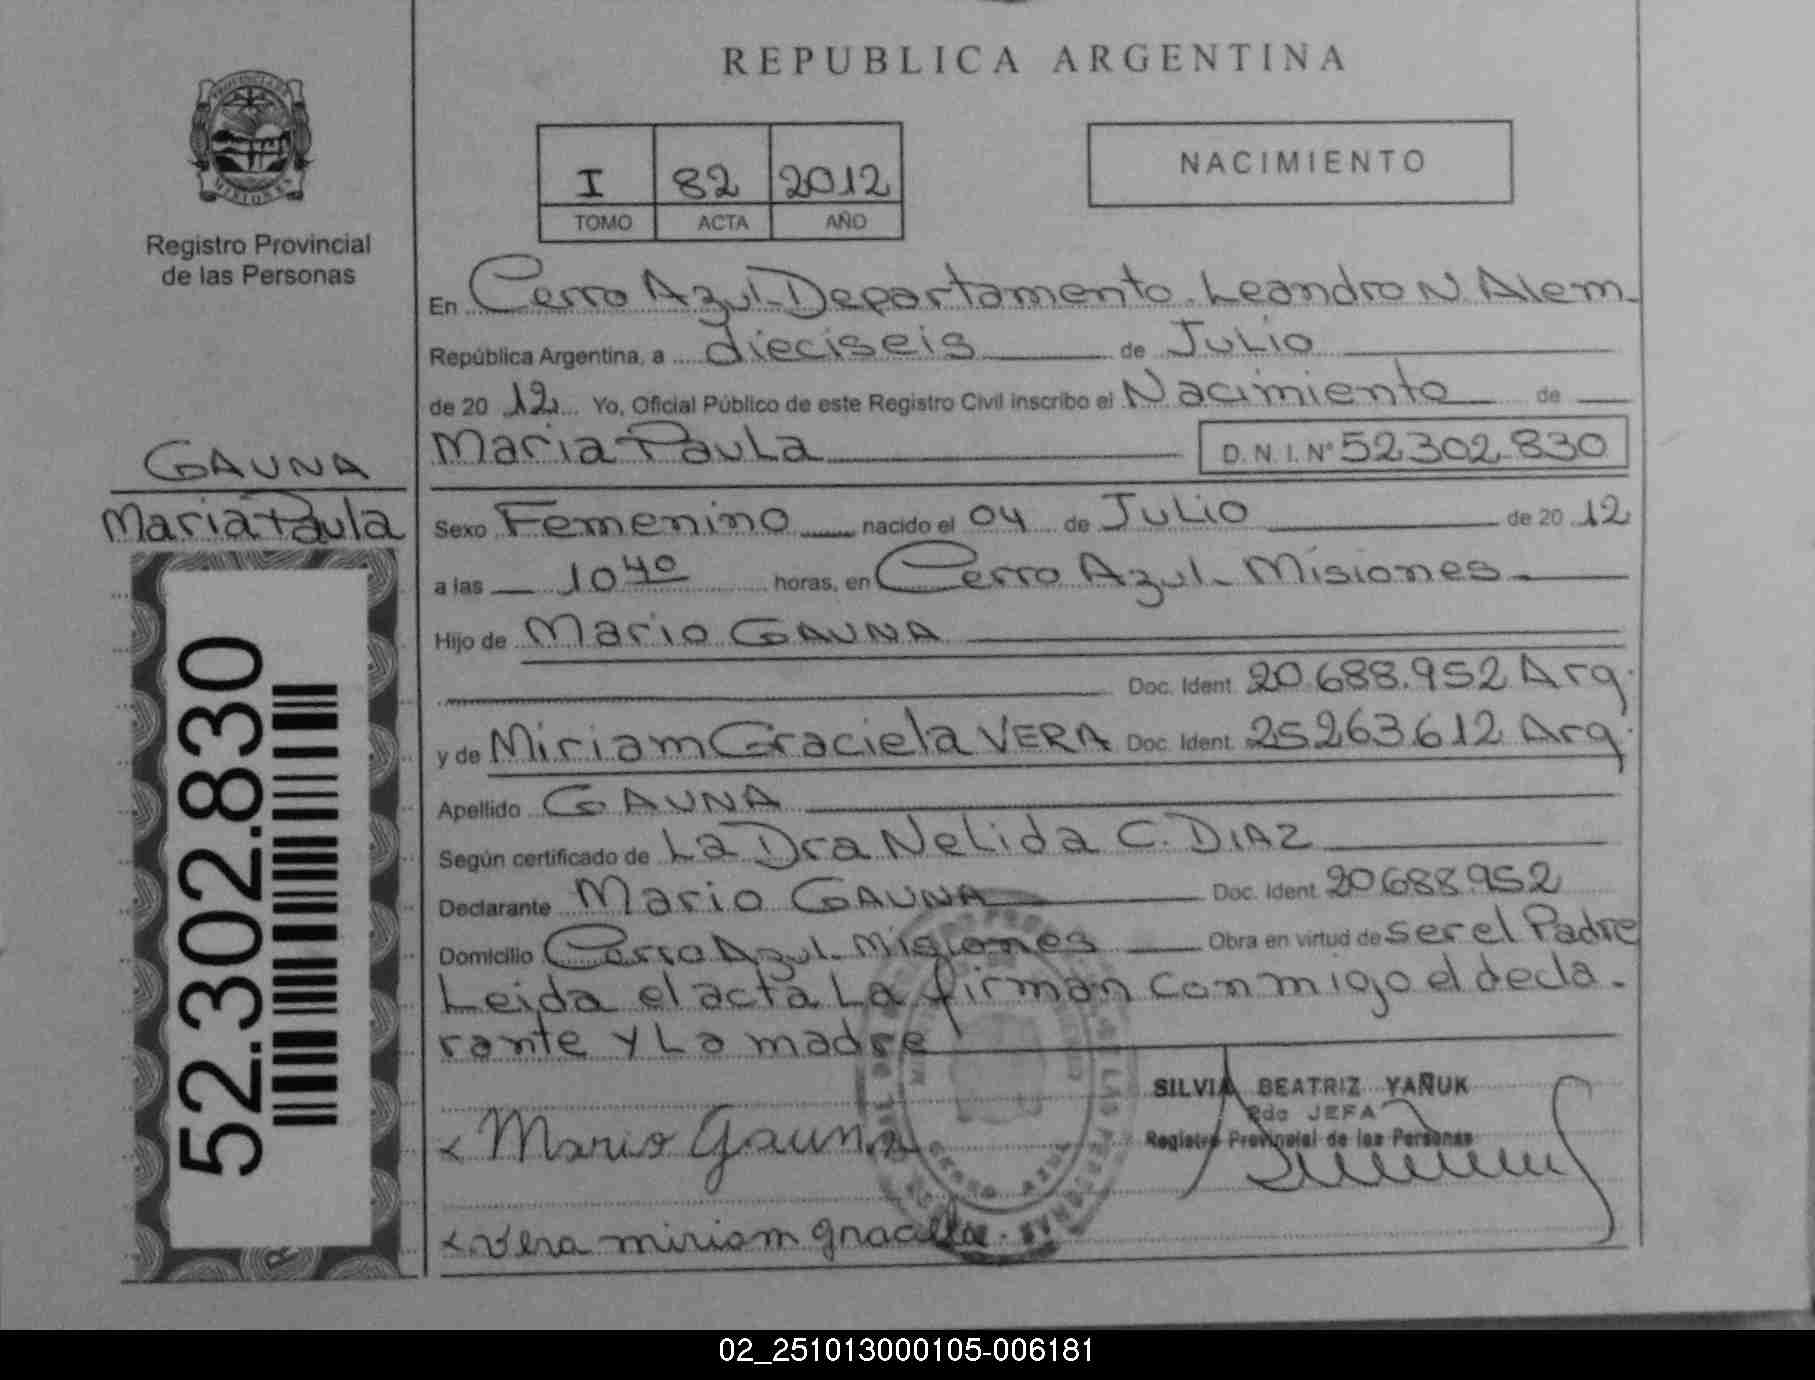 REPUBLICA ARGENTINA
PROVINCIA DE
MISIONES
Registro Provincial
de las Personas
I 82 2012
TOMO ACTA AÑO
NACIMIENTO
En Cerro Azul-Departamento Leandro N. Alem-
República Argentina, a dieciseis de Julio
de 2012 Yo, Oficial Público de este Registro Civil inscribo el Nacimiento de
Maria Paula D.N.I. Nº 52302830
GAUNA
Maria Paula
Sexo Femenino nacido el 04 de Julio de 2012
a las 10 40 horas, en Cerro Azul- Misiones-
Hijo de Mario GAUNA
Doc. Ident. 20.688.952 Arg.
y de Miriam Graciela VERA Doc. Ident. 25263612 Arg.
Apellido GAUNA
Según certificado de La Dra Nelida C. DIAZ
Declarante Mario GAUNA Doc. Ident. 20688952
Domicilio Cerro Azul- Misiones Obra en virtud de ser el Padre
Leida el acta La firman conmigo el decla-
rante y La madre
52.302.830
SILVIA BEATRIZ YAÑUK
2da JEFA
Registro Provincial de las Personas
Mario Gauna
Vera miriam graciela.
CERRO AZUL
02_251013000105-006181